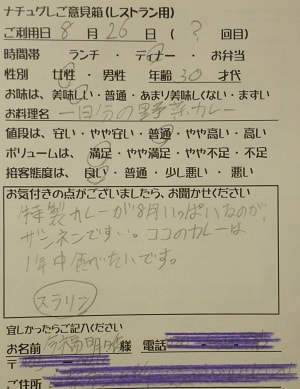 ナチュグしご意見箱(レストラン用)
ご利用日 8 月 26 日 ( ? 回目)
時間帯 ランチ・ディナー・お弁当
性別 女性・男性 年齢 30 才代
お味は、美味しい・普通・あまり美味しくない・まずい
お料理名 一日分の野菜カレー
値段は、安い・やや安い・普通・やや高い・高い
ボリュームは、満足・やや満足・やや不足・不足
接客態度は、良い・普通・少し悪い・悪い
お気付きの点がございましたら、お聞かせください
特製カレーが8月いっぱいなのが、
ザンネンですい。ココのカレーは
1年中食べたいです。
スラリン
宜しかったらご記入ください
お名前 様 電話
〒
ご住所